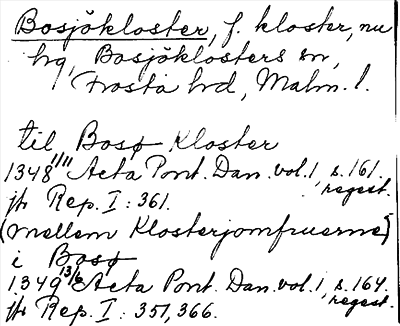 Bosjökloster, f. kloster, nu
hg, Bosjöklosters sn,
Frosta hd, Malm. l.
til Bosø Kloster
1348 11/11 Acta Pont. Dan. vol. 1, s. 161.
regest.
jfr Rep. I: 361.
(mellem Klosterjomfruerne)
i Bosø
1349 13/6 Acta Pont. Dan. vol. 1, s. 164.
regest.
jfr Rep. I: 351, 366.